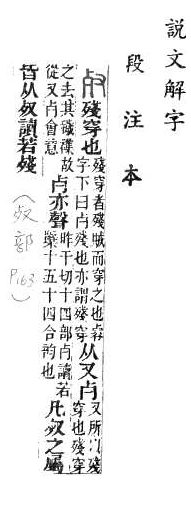 說文解字
段注本
𣦼殘穿也殘穿者殘賊而穿之也歺字下曰歺殘也亦謂殘穿从又歺又所㠯殘穿也殘穿
之去其穢襍故從又歺會意歺亦聲昨干切十四部歺讀若櫱十五十四合韵也凡𣦼之屬
皆从𣦼讀若殘
(𣦼部 P163)